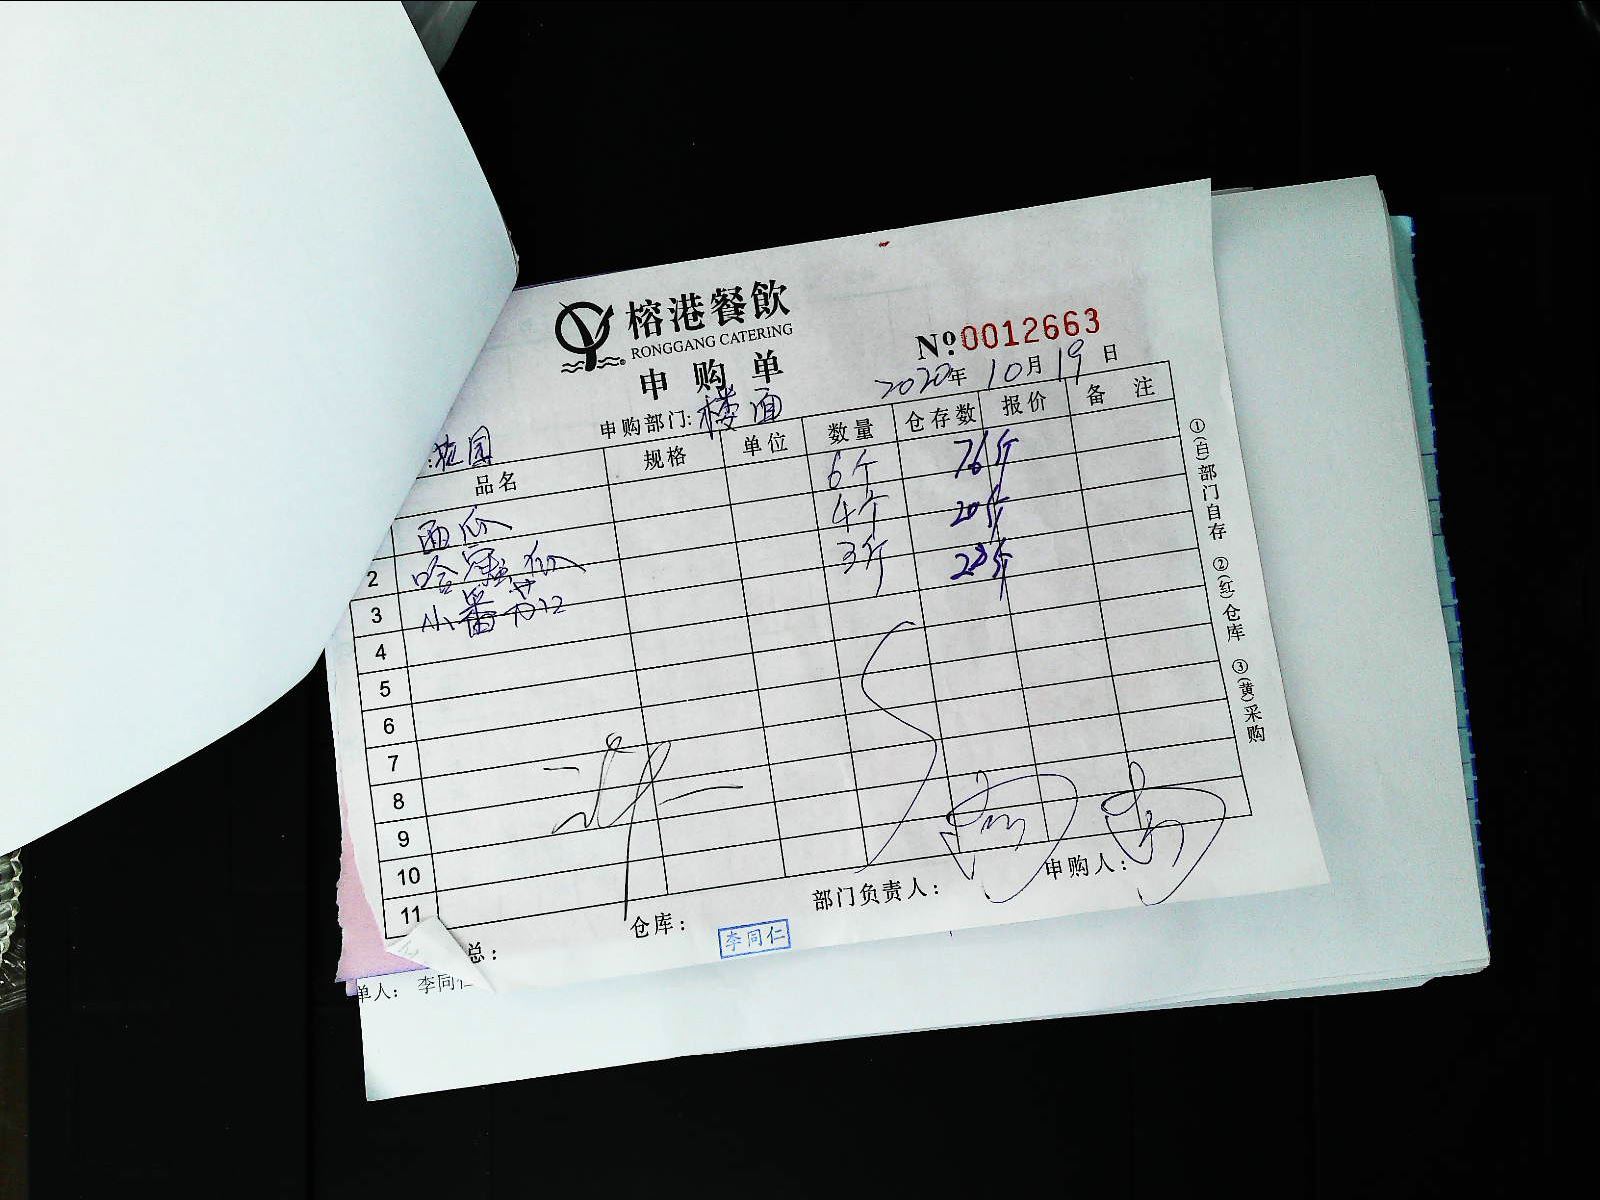 榕港餐飲
RONGGANG CATERING
申购单
№0012663
2020年10月19日
申购部门:楼面
:花园
品名 规格 单位 数量 仓存数 报价 备注
西瓜 6个 76斤
2 哈密瓜 4个 20斤
3 小番茄 3斤 23斤
4
5
6
7
8
9
10
11
总: 仓库: 部门负责人: 申购人:
李同仁
单人: 李同仁
①(白)部门自存 ②(红)仓库 ③(黄)采购